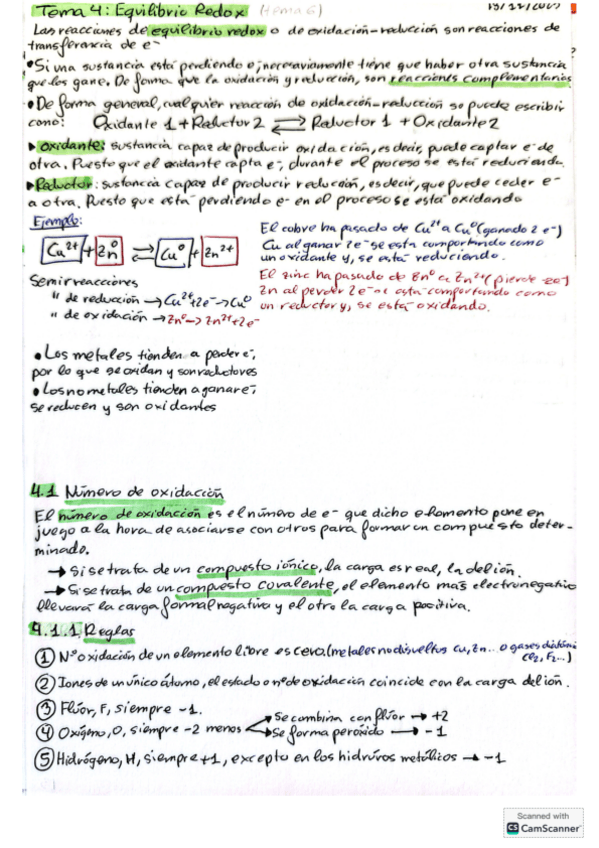 Tema 4: Equilibrio Redox (tema 6)
Las reacciones de equilibrio redox o de oxidación-reducción son reacciones de
transferencia de e-
• Si una sustancia está perdiendo e-, necesariamente tiene que haber otra sustancia
que los gane. De forma que la oxidación y reducción, son reacciones complementarias.
• De forma general, cualquier reacción de oxidación-reducción se puede escribir
como: Oxidante 1 + Reductor 2 ⇌ Reductor 1 + Oxidante 2
▸ Oxidante: sustancia capaz de producir oxidación, es decir, puede captar e- de
otra. Puesto que el oxidante capta e-, durante el proceso se está reduciendo.
▸ Reductor: sustancia capaz de producir reducción, es decir, que puede ceder e-
a otra. Puesto que está perdiendo e- en el proceso se está oxidando
Ejemplo:
Cu²⁺ + Zn⁰ ⇌ Cu⁰ + Zn²⁺
El cobre ha pasado de Cu²⁺ a Cu⁰ (ganado 2 e-)
Cu al ganar 2e- se esta comportando como
un oxidante y, se está reduciendo.
El zinc ha pasado de Zn⁰ a Zn²⁺ (pierde 2e-)
Zn al perder 2e- se está comportando como
un reductor y, se está oxidando.
Semirreacciones
" de reducción → Cu²⁺ + 2e- → Cu⁰
" de oxidación → Zn⁰ → Zn²⁺ + 2e-
• Los metales tienden a perder e-,
por lo que se oxidan y son reductores
• Los no metales tienden a ganar e-,
se reducen y son oxidantes
4.1 Número de oxidación
El número de oxidación es el número de e- que dicho elemento pone en
juego a la hora de asociarse con otros para formar un compuesto deter-
minado.
→ Si se trata de un compuesto iónico, la carga es real, la del ión.
→ Si se trata de un compuesto covalente, el elemento más electronegativo
llevará la carga formal negativa y el otro la carga positiva.
4.1.1 Reglas
① Nº oxidación de un elemento libre es cero (metales no disueltos Cu, Zn... o gases diatómi
Cl₂, F₂...)
② Iones de un único átomo, el estado o nº de oxidación coincide con la carga del ión.
③ Flúor, F, siempre -1.
④ Oxígeno, O, siempre -2 menos → Se combina con flúor → +2
→ Se forma peróxido → -1
⑤ Hidrógeno, H, siempre +1, excepto en los hidruros metálicos → -1
Scanned with
CS CamScanner